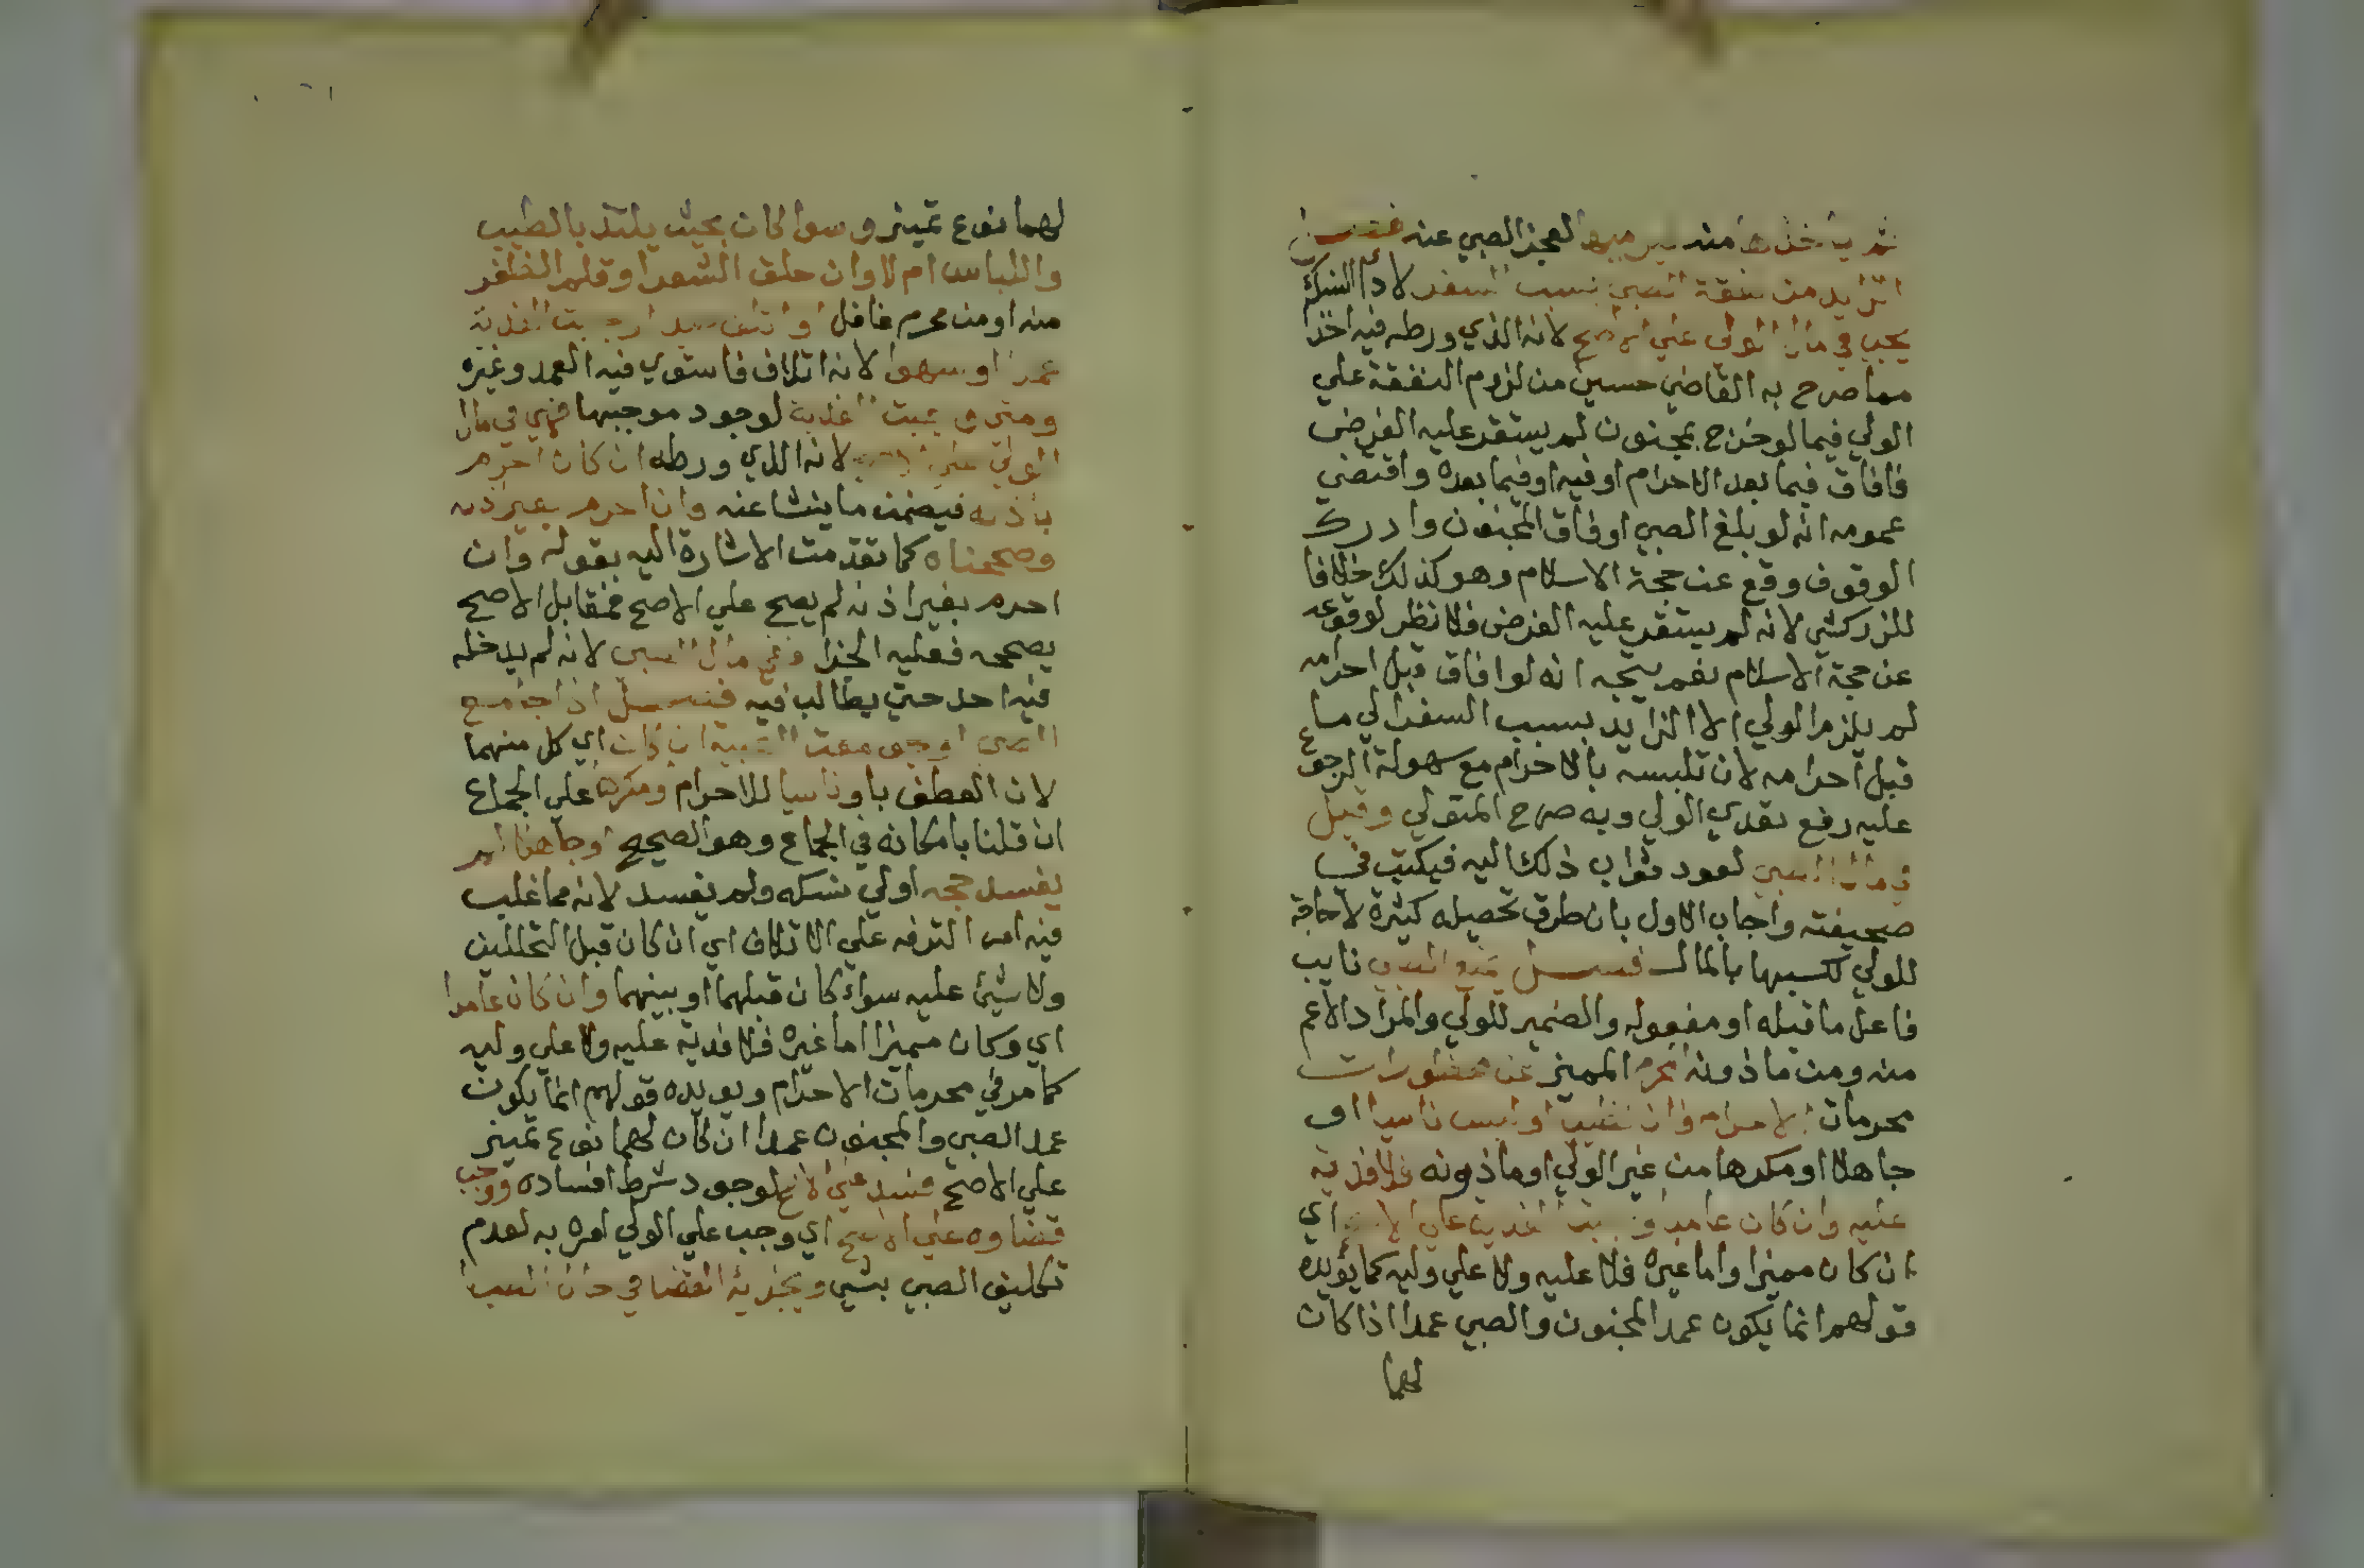 ثم ياخذها منه لعجز الصبي عنه فصل
الزايد من نفقة الصبي بسبب السفر لا دم النسك
يجب في مال الولي علي الاصح لانه الذي ورطه فيه اخذا
مما صرح به القاضي حسين من لزوم النفقة علي
الولي فيما لو خرج بمجنون لم يستقر عليه الفرض
فافاق فيما بعد الاحرام او فيه او فيما بعده واقتضي
عمومه انه لو بلغ الصبي او فاق المجنون وادرك
الوقوف وقع عن حجة الاسلام وهو كذلك خلافا
للزركشي لانه لم يستقر عليه الفرض فلا نظر لوقوعه
عن حجة الاسلام نعم يتجه انه لو افاق قبل احرامه
لم يلزم الولي الا الزايد بسبب السفر الي ما
قبل احرامه لان تلبسه بالاحرام مع سهولة الرجوع
عليه رفع تعدي الولي وبه صرح المتولي وقيل
في مال الصبي لعود ثواب ذلك اليه فيكتب في
صحيفته واجاب الاول بان طرق تحصيله كثيرة لا حاجة
للولي لكسبها بالمال فصل يمنع الصبي نايب
فاعل ما قبله او مفعوله والضمير للولي والمراد الاعم
منه ومن ماذونه المحرم المميز من محظورات
محرمات الاحرام فان تطيب او لبس ناسيا او
جاهلا او مكرها من غير الولي او ماذونه فلا فدية
عليه وان كان عامدا وجبت الفدية علي الاصح اي
ان كان مميزا واما غيره فلا عليه ولا علي وليه كما يؤيده
قولهم انما يكون عمد المجنون والصبي عمدا اذا كان
لهما
لهما نوع تمييز وسوا كان بحيث يلتذ بالطيب
واللباس ام لا وان حلق الشعر او قلم الظفر
منه او من محرم غافل او اتلف صيدا وجبت الفدية
عمدا او سهوا لانه اتلاف فاستوي فيه العمد وغيره
ومتي وجبت الفدية لوجود موجبها فهي في مال
الولي علي الاصح لانه الذي ورطه ان كان احرم
باذنه فيضمن ما ينشا عنه وان احرم بغير اذنه
وصححناه كما تقدمت الاشارة اليه بقوله وان
احرم بغير اذنه لم يصح علي الاصح فمقابل الاصح
يصححه فعليه الجزا في مال الصبي لانه لم يدخله
فيه احد حتي يطالب فيه فصل اذا جامع
الصبي او جومعت الصبية ان كان اي كل منهما
لان العطف باو ناسيا للاحرام ومكرها علي الجماع
ان قلنا بامكانه في الجماع وهو الصحيح او جاهلا لم
يفسد حجه اولي نسكه ولم يفسد لانه مما غلب
فيه امر الترفه علي الاتلاف اي ان كان قبل التحللين
ولا شيئ عليه سواء كان قبلهما او بينهما وان كان عامدا
اي وكان مميزا اما غيره فلا فدية عليه ولا علي وليه
كما مر في محرمات الاحرام ويويده قولهم انما يكون
عمد الصبي والمجنون عمدا ان كان لهما نوع تمييز
علي الاصح فسد علي الاصح لوجود شرط افساده ووجب
قضاوه علي الاصح اي وجب علي الولي امره به لعدم
تكليف الصبي بشي ويجزيه القضا في حال الصبا